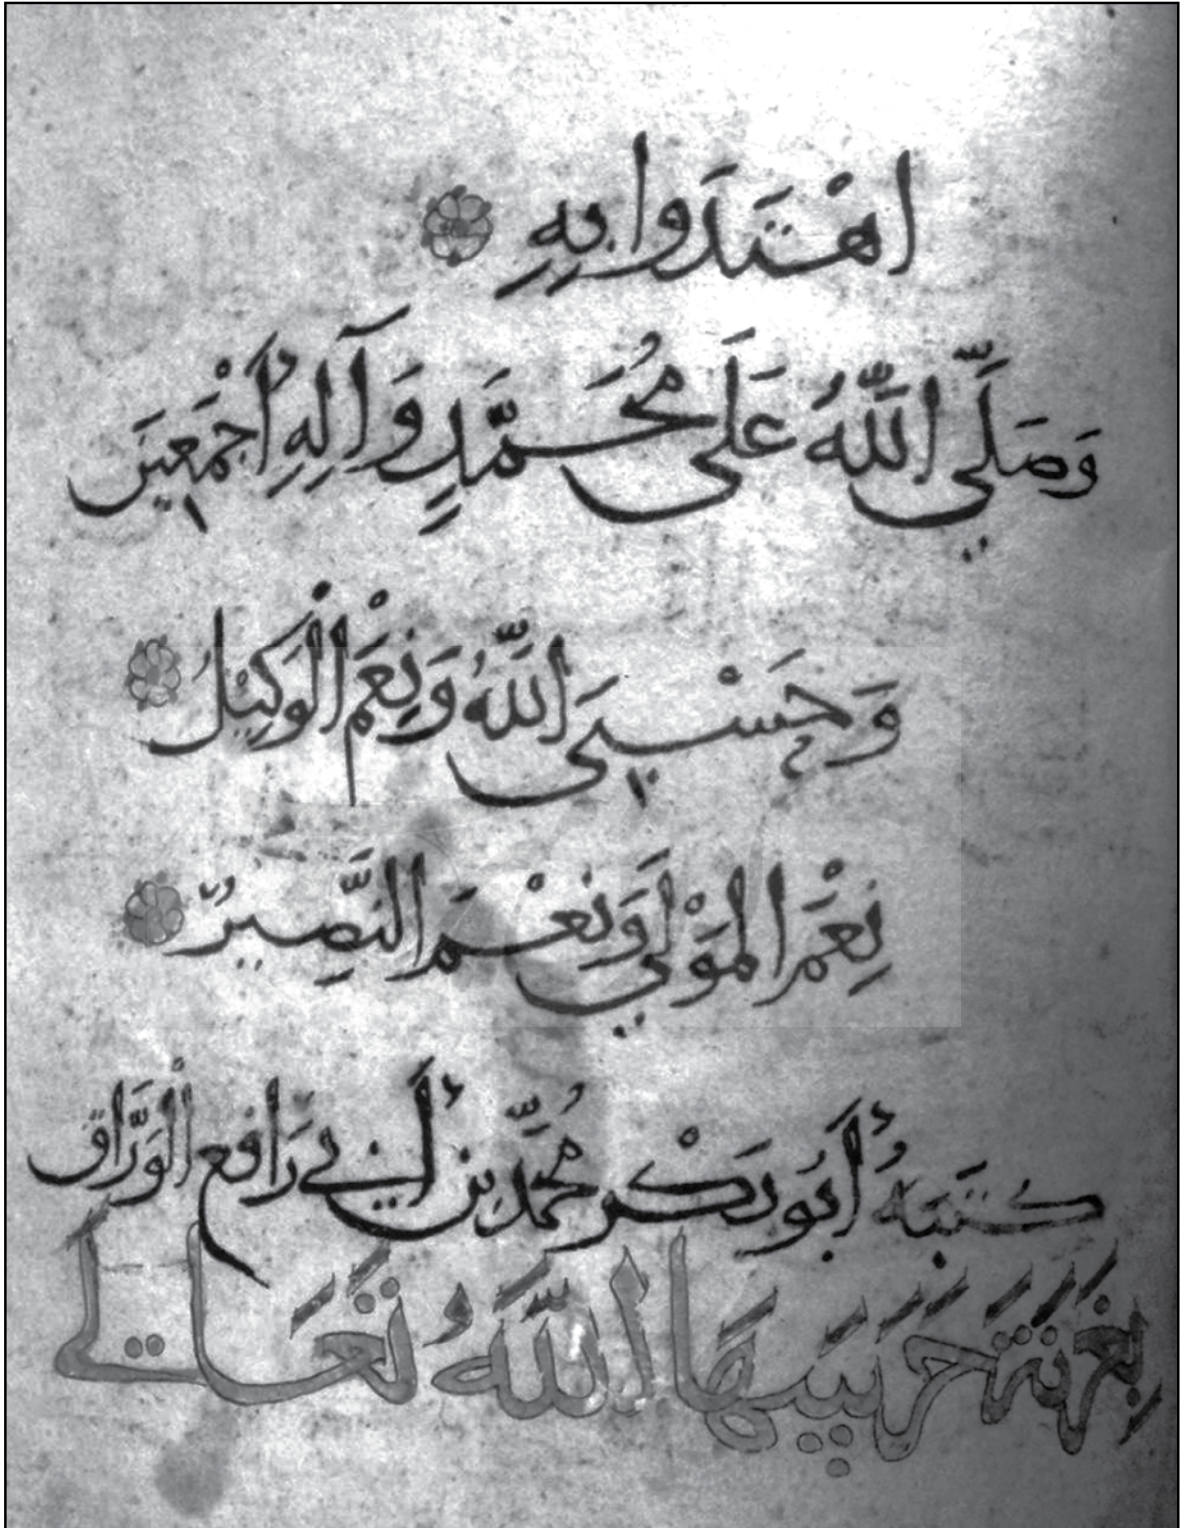 اهْتَدَوا بِهِ
وَصَلَّي اللَّهُ عَلَى مُحَمَّدٍ وَآلِهِ أَجْمَعِينَ
وَحَسْبِيَ اللَّهُ وَنِعْمَ الْوَكِيلُ
نِعْمَ الْمَوْلَي وَنِعْمَ النَّصِيرُ
كَتَبَهُ أَبُو بَكْر مُحَمَّد بن أَبِي رَافِع الْوَرَّاق
بِغَزْنَةَ حَرَسَهَا اللَّهُ تَعَالَي